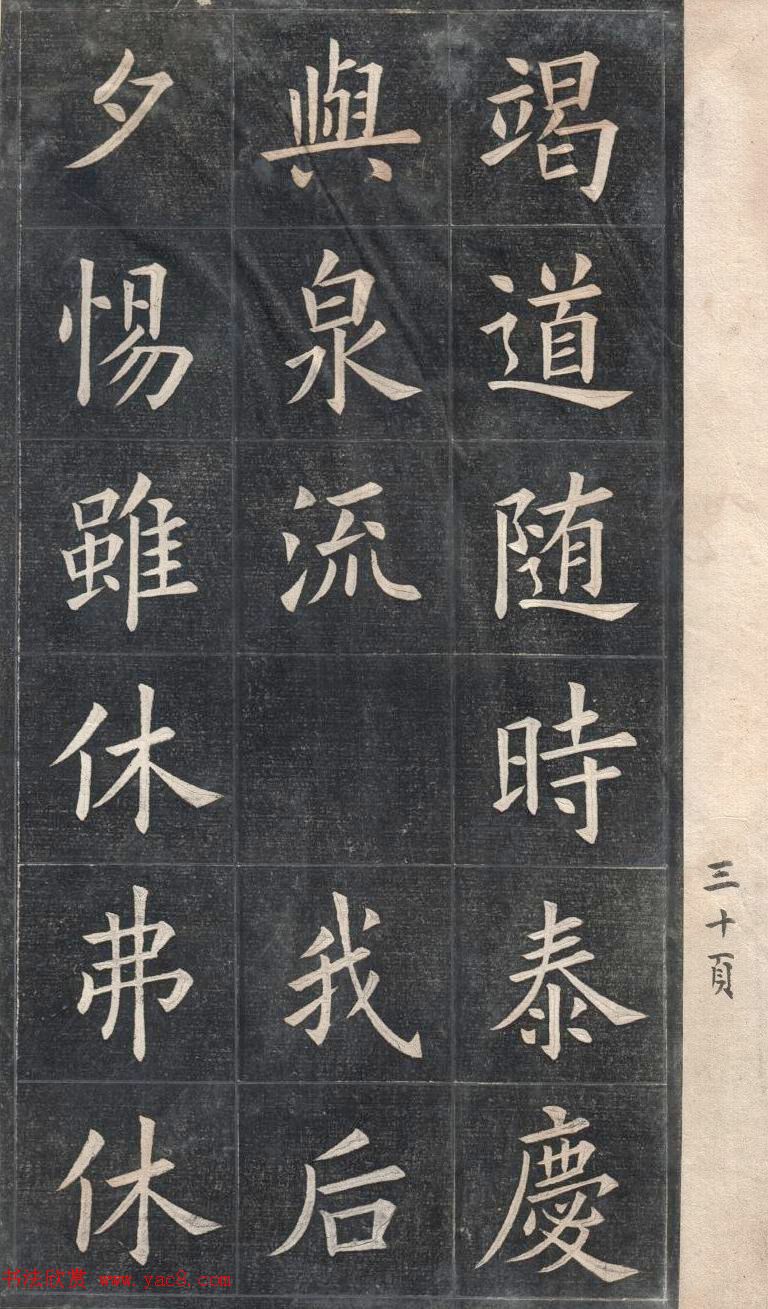 竭道随時泰慶
與泉流　我后
夕惕雖休弗休
三十頁
书法欣赏 www.yac8.com